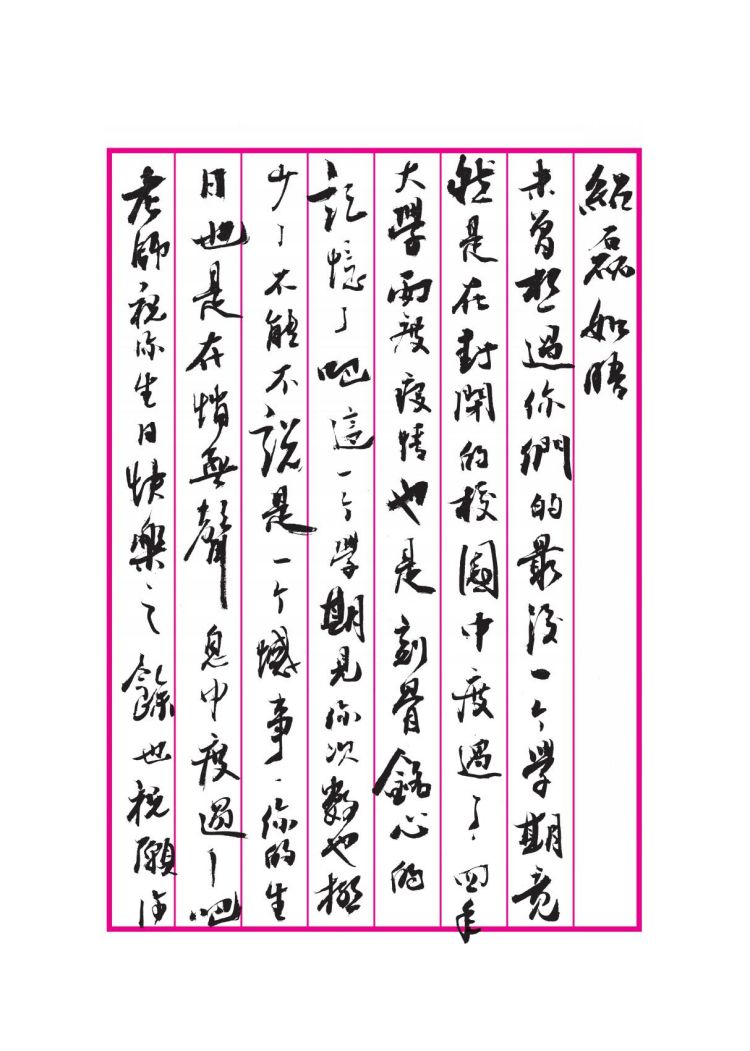 紹磊如晤
未曾想過你們的最後一个學期竟
然是在封閉的校園中度過了四年
大學兩度疫情也是刻骨銘心的
記憶了吧這一个學期見你次數也極
少了不能不說是一个憾事你的生
日也是在悄無聲息中度過了吧
老師祝你生日快樂之餘也祝願你